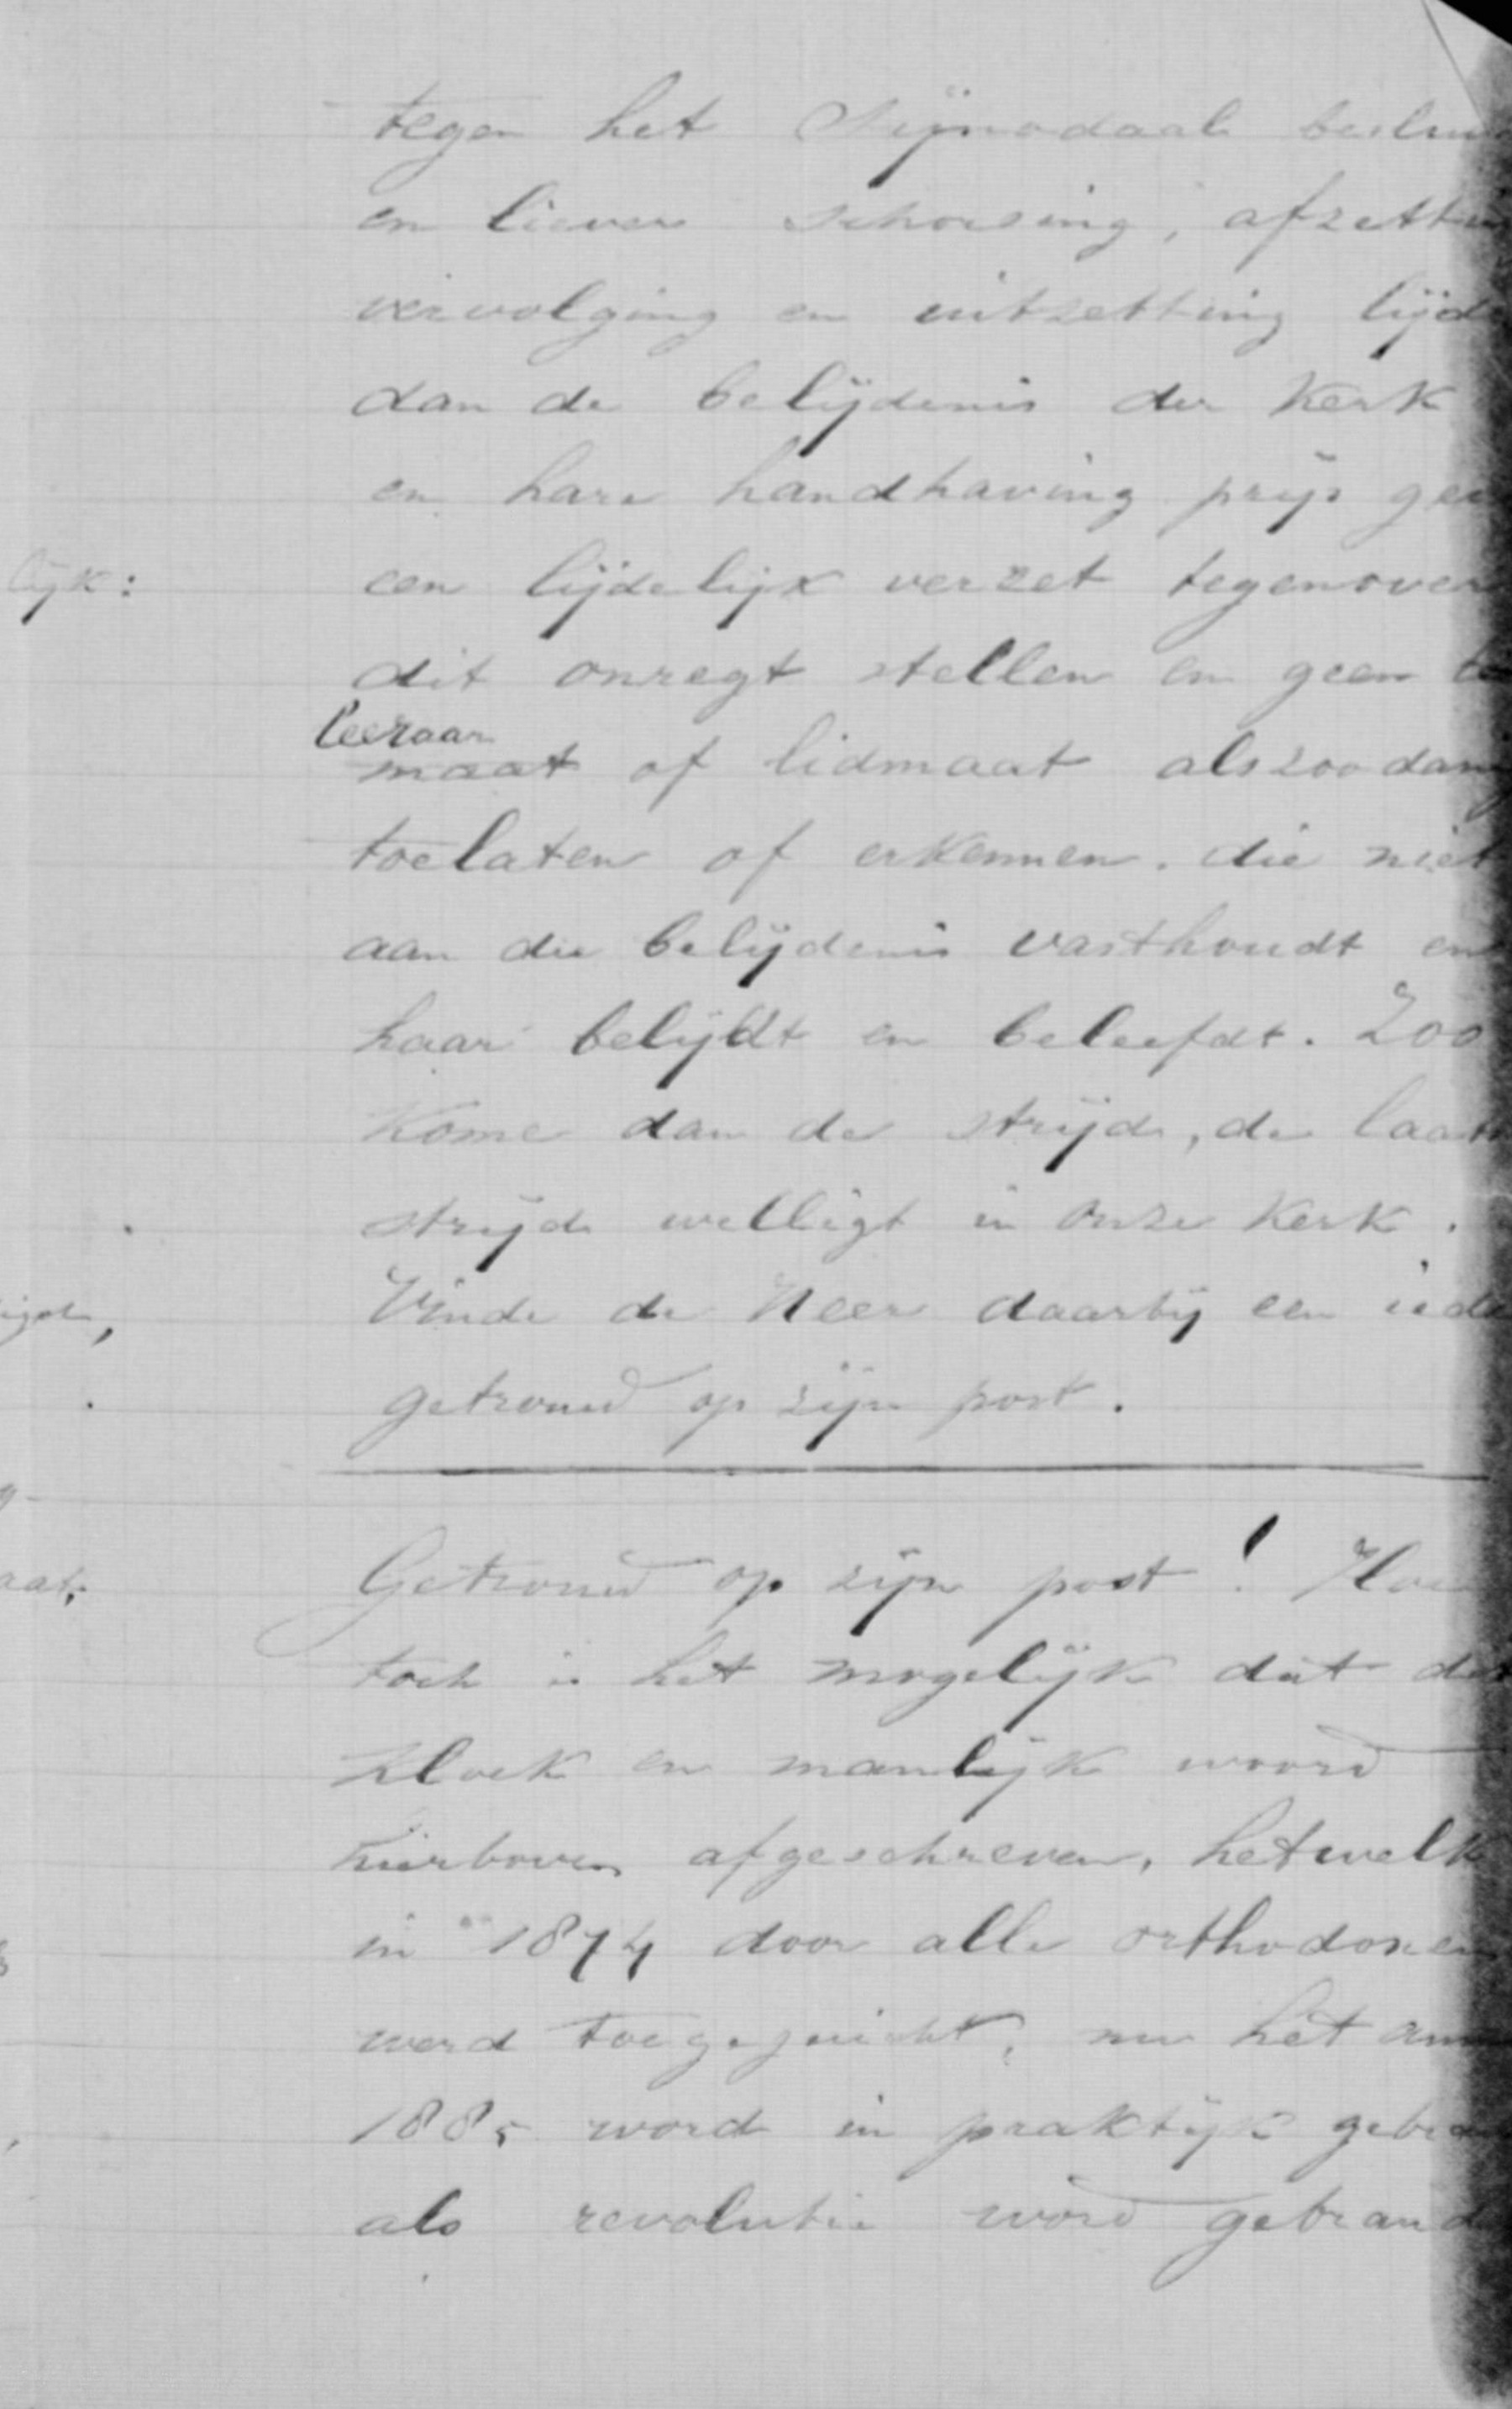 tegen het Sijnodaal beslu
en lievers schorsing, afzettin
vervolging en uitzetting lijd
dan de belijdenis der Kerk
en hare handhaving prijs gev
lijk:
een lijdelijk verzet tegenover
dit onregt stellen en geen
leeraar
maat of lidmaat alszoodanig
toelaten of erkennen. die niet
aan die belijdenis vasthoudt en
haar belijdt en beleefdt. Zoo
Kome dan de strijd, de laat
strijd welligt in onze Kerk.
igd,
Vinde de Heer daarbij een iede
getrouw op zijn post.
aat;
Getrouw op zijn post! Hoe
toch is het mogelijk dat dit
kloek en manlijk woord
hierboven afgeschreven, hetwelk
in 1874 door alle orthodoxen
werd toegejuicht, nu het anno
1885 word in praktijk gebra
als revolutie word gebrand